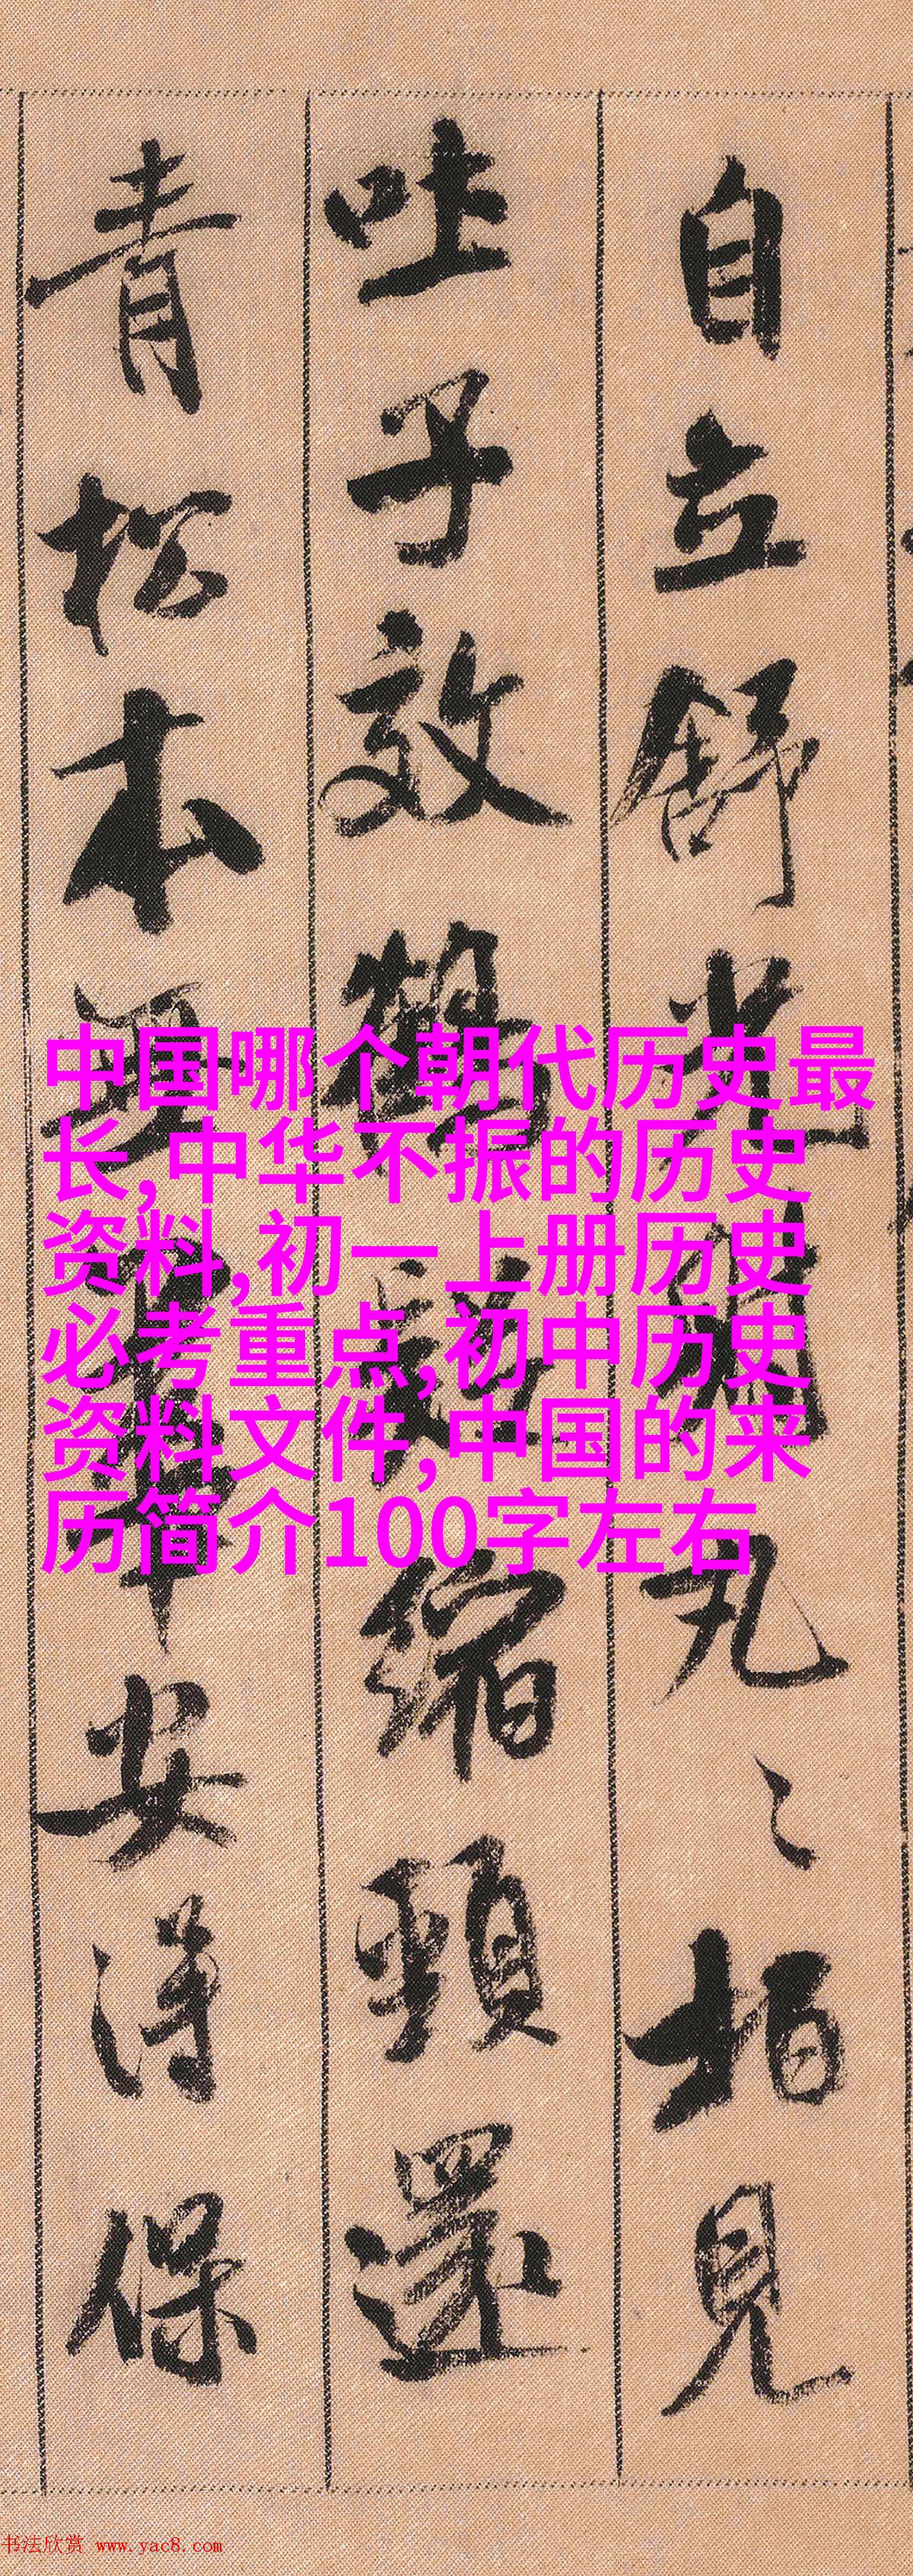 自立舒光射丸〻柏見
吐子效鶴疑縮頸還
青松本無華安得保
中国哪个朝代历史最
长,中华不振的历史
资料,初一上册历史
必考重点,初中历史
资料文件,中国的来
历简介100字左右
书法欣赏 www.yac8.com